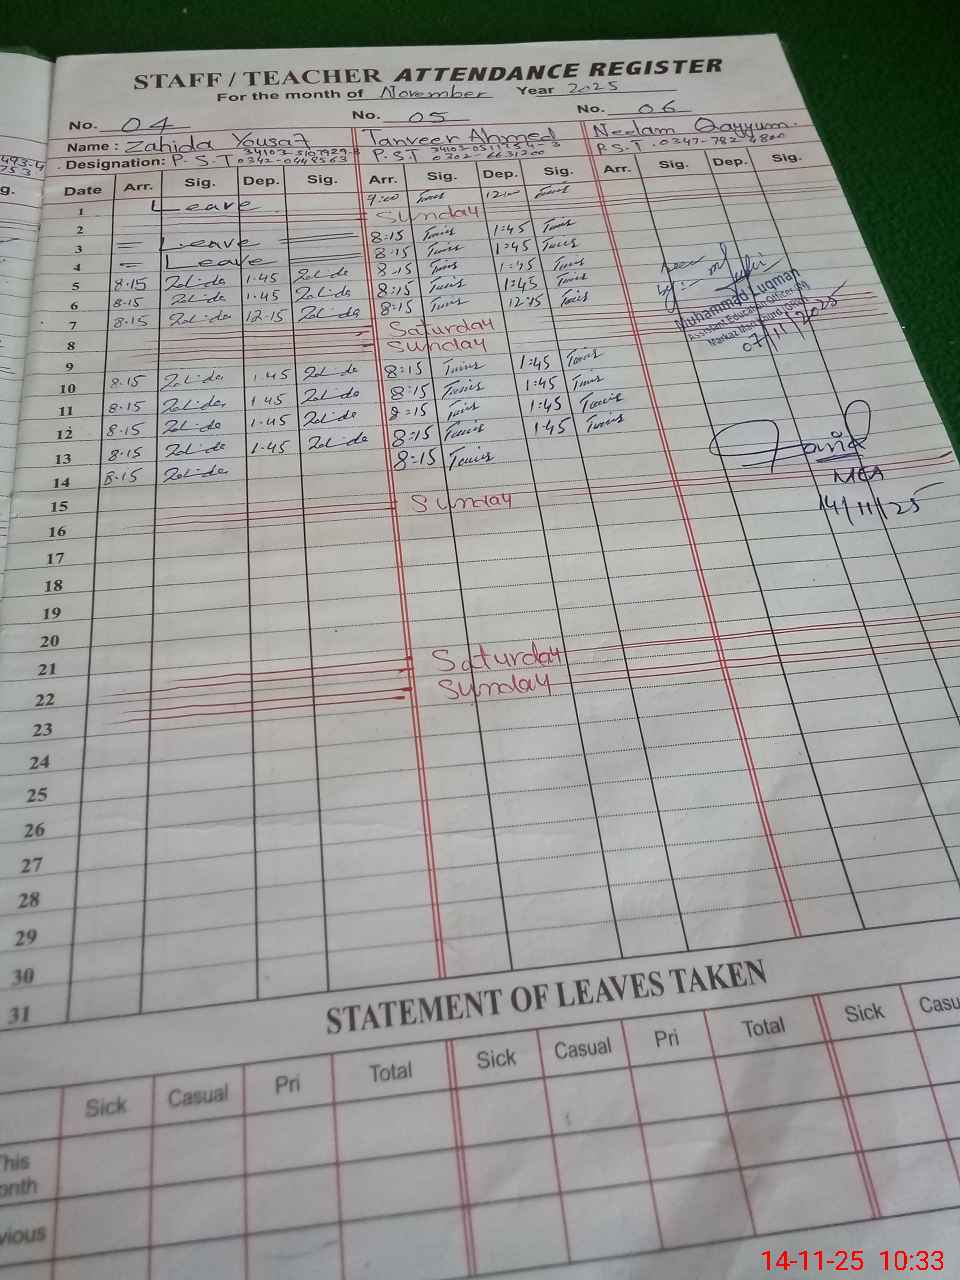 STAFF / TEACHER ATTENDANCE REGISTER
For the month of November Year 2025
No. 04 No. 05 No. 06
Name : Zahida Yousaf Tanveer Ahmed Neelam Qayyum.
Designation: P.S.T P.S.T P.S.T
Date Arr. Sig. Dep. Sig. Arr. Sig. Dep. Sig. Arr. Sig. Dep. Sig.
1 Leave 9:00 12:00
2 Sunday
3 = Leave 8:15 1:45
4 = Leave 8:15 1:45
5 8.15 Zahida 1.45 Zahida 8:15 1:45
6 8.15 Zahida 1.45 Zahida 8:15 1:45
7 8.15 Zahida 12.15 Zahida 8:15 12:15
8 Saturday
9 Sunday
10 8.15 Zahida 1.45 Zahida 8:15 1:45
11 8.15 Zahida 1.45 Zahida 8:15 1:45
12 8.15 Zahida 1.45 Zahida 8:15 1:45
13 8.15 Zahida 1.45 Zahida 8:15 1:45
14 8.15 Zahida 8:15
15
16 Sunday
17
18
19
20
21
22 Saturday
23 Sunday
24
25
26
27
28
29
30
31
Muhammad Luqman
07/11/2025
MEA
14/11/25
STATEMENT OF LEAVES TAKEN
Sick Casual Pri Total Sick Casual Pri Total Sick Casu
This
onth
vious
14-11-25 10:33